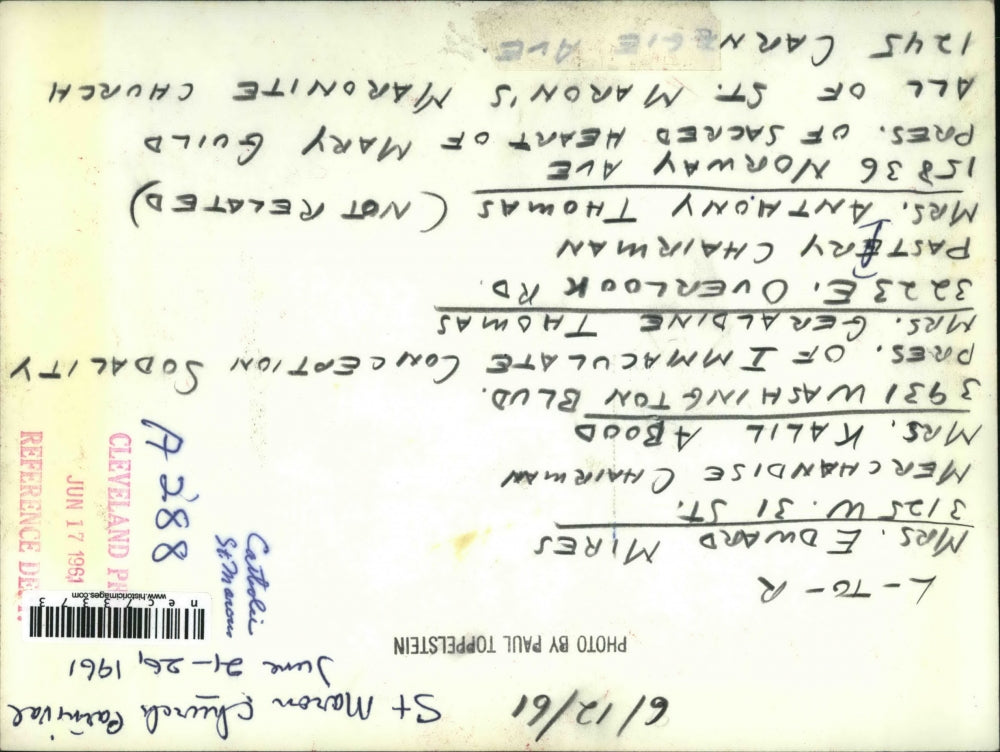 6/12/61
St Maron Church Carnival
June 21-26, 1961
PHOTO BY PAUL TOPPELSTEIN
L-TO-R
MRS. EDWARD MIRES
3125 W. 31 ST.
MERCHANDISE CHAIRMAN
MRS. KALIL ABOOD
3931 WASHINGTON BLVD.
PRES. OF IMMACULATE CONCEPTION SODALITY
MRS. GERALDINE THOMAS
3223 E. OVERLOOK RD.
PASTRY CHAIRMAN
MRS. ANTHONY THOMAS (NOT RELATED)
15836 NORWAY AVE
PRES. OF SACRED HEART OF MARY GUILD
ALL OF ST. MARON'S MARONITE CHURCH
1245 CARNEGIE AVE.
www.historicimages.com
nec73373
Catholic
St. Marons
A288
CLEVELAND PR
JUN 17 1961
REFERENCE DEPT.